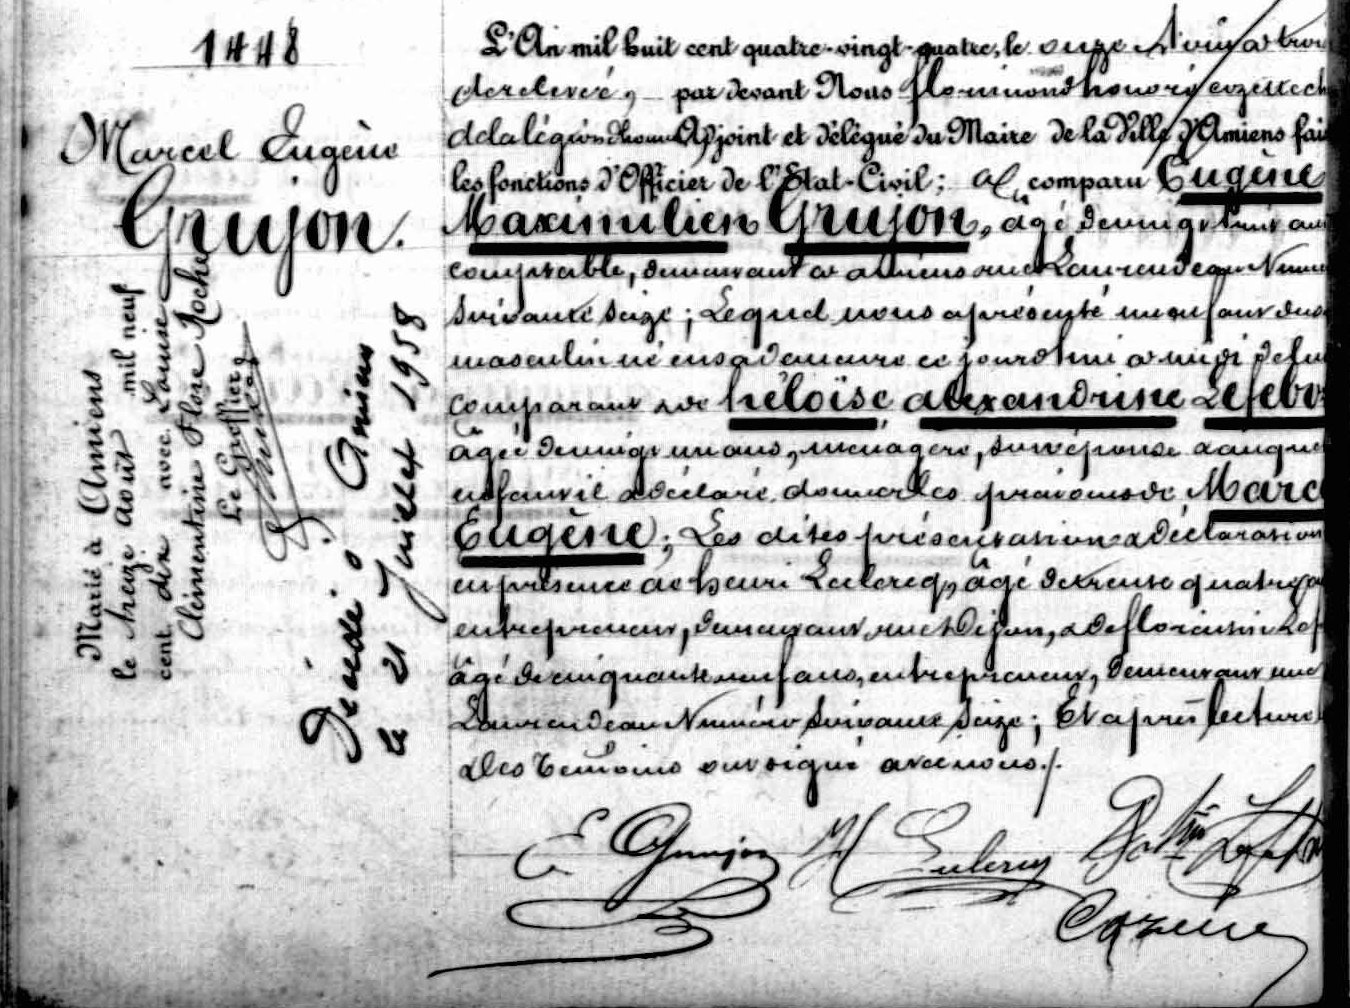 1448
Marcel Eugène
Grujon.
Marié à Amiens
le treize août mil neuf
cent dix avec Louise
Clémentine Flore Roche
Le Greffier
Décédé à Amiens
le 21 Juillet 1958
L'An mil huit cent quatre-vingt-quatre, le onze à trois
de relevée, par devant Nous florimond honoré
de la légion d'honneur Adjoint et délégué du Maire de la Ville d'Amiens fai
les fonctions d'Officier de l'État-Civil; a comparu Eugène
Maximilien Grujon, âgé de vingt huit ans
comptable, demeurant à amiens rue Laurendeau Numéro
soixante seize; Lequel nous a présenté un enfant du s
masculin né en sa demeure ce jourd'hui à midi de lui
comparant et de héloïse alexandrine Lefebv
âgée de vingt un ans, ménagère, son épouse auquel
enfant il a déclaré donner les prénoms de Marc
Eugène; Les dites présentation et déclaration
en présence de henri Leclercq, âgé de trente quatre
entrepreneur, demeurant rue Dijon, et de florentin Lef
âgé de cinquante neuf ans, entrepreneur, demeurant rue
Laurendeau Numéro soixante seize; Et après lecture
et les témoins ont signé avec nous ./.
E Grujon H Leclercq